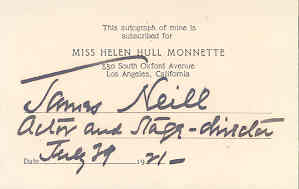 This autograph of mine is
subscribed for
MISS HELEN HULL MONNETTE
350 South Oxford Avenue
Los Angeles, California
James Neill
Actor and Stage-director
Date July 29 1921-